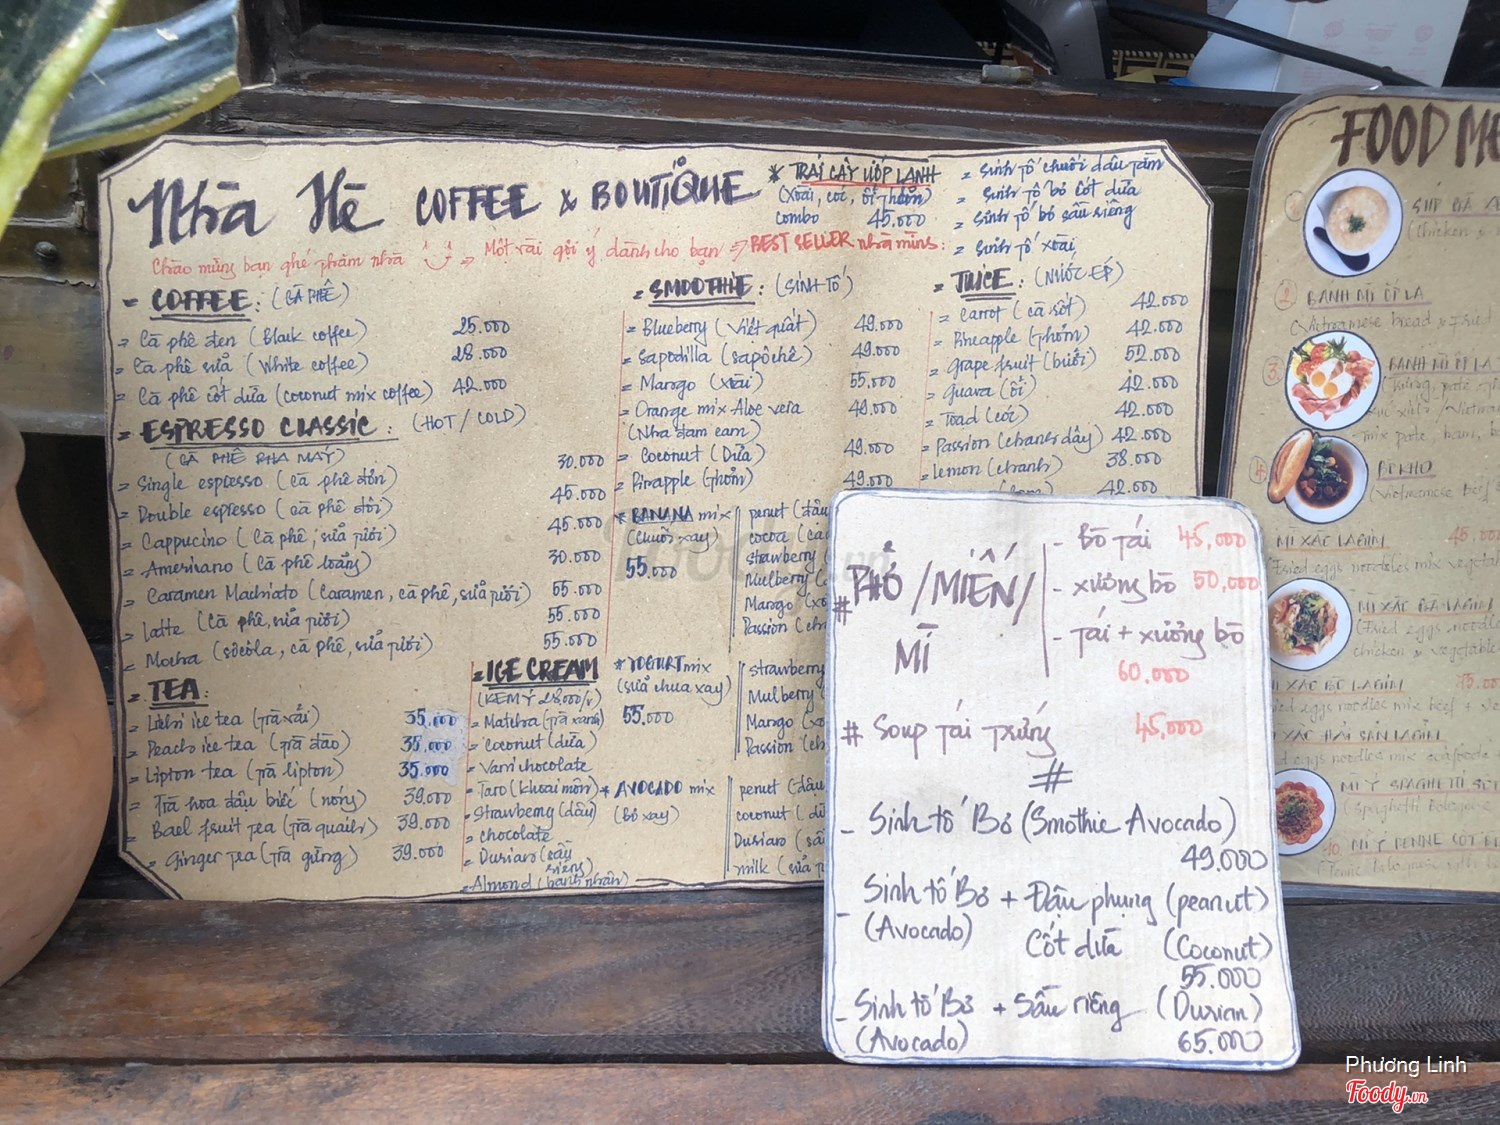 Nhà Hè COFFEE & BOUTIQUE
Chào mừng bạn ghé thăm nhà
Một vài gợi ý dành cho bạn => BEST SELLER nhà mình:
* TRÁI CÂY ƯỚP LẠNH
(Xoài, cóc, ổi, thơm)
combo 45.000
= Sinh tố chuối dâu tằm
= Sinh tố bơ cốt dừa
= Sinh tố bơ sầu riêng
= Sinh tố xoài
= COFFEE: (CÀ PHÊ)
= Cà phê đen (Black coffee) 25.000
= Cà phê sữa (White coffee) 28.000
= Cà phê cốt dừa (coconut mix coffee) 42.000
= ESPRESSO CLASSIC: (HOT / COLD)
(CÀ PHÊ PHA MÁY)
= Single espresso (cà phê đơn) 30.000
= Double espresso (cà phê đôi) 45.000
= Cappucino (cà phê, sữa tươi) 45.000
= Americano (cà phê loãng) 30.000
= Caramen Machiato (caramen, cà phê, sữa tươi) 55.000
= Latte (cà phê, sữa tươi) 55.000
= Mocha (sôcôla, cà phê, sữa tươi) 55.000
= TEA:
= Lichi ice tea (trà vải) 35.000
= Peach ice tea (trà đào) 35.000
= Lipton tea (trà lipton) 35.000
= Trà hoa đậu biếc (nóng) 39.000
= Bael fruit tea (trà quách) 39.000
= Ginger tea (trà gừng) 39.000
= SMOOTHIE: (SINH TỐ)
= Blueberry (việt quất) 49.000
= Sapodilla (sapôchê) 49.000
= Mango (xoài) 55.000
= Orange mix Aloe vera 49.000
(Nha đam cam)
= Coconut (Dừa) 49.000
= Pinapple (thơm) 49.000
* BANANA mix
(chuối xay)
55.000
penut (đậu
cocoa (ca
strawberry
Mulberry
Mango (xo
Passion (cha
= ICE CREAM
(KEM Ý 28.000/v)
= Matcha (trà xanh)
= coconut (dừa)
= Vani chocolate
= Taro (khoai môn)
= Strawberry (dâu)
= chocolate
= Durian (sầu
riêng)
= Almond (hạnh nhân)
* YOGURT mix
(sữa chua xay)
55.000
strawberry
Mulberry
Mango (xo
Passion (ch
* AVOCADO mix
(bơ xay)
penut (đậu
coconut (dừ
Durian (sầ
milk (sữa t
= JUICE: (NƯỚC ÉP)
= Carrot (cà rốt) 42.000
= Pineapple (thơm) 42.000
= Grape fruit (bưởi) 52.000
= Guava (ổi) 42.000
= Toad (cóc) 42.000
= Passion (chanh dây) 42.000
= Lemon (chanh) 38.000
42.000
# PHỞ / MIẾN /
MÌ
- Bò tái 45,000
- xương bò 50,000
- tái + xương bò
60.000
# Soup tái trứng 45,000
#
- Sinh tố Bơ (Smothie Avocado)
49.000
- Sinh tố Bơ + Đậu phụng (peanut)
(Avocado) Cốt dừa (Coconut)
55.000
- Sinh tố Bơ + Sầu riêng (Durian)
(Avocado) 65.000
FOOD ME
1
SÚP GÀ
(Chicken &
2 BÁNH MÌ ỐP LA
(Vietnamese bread & fried
3 BÁNH MÌ ỐP LA
4 BÒ KHO
(Vietnamese beef
MÌ XÀO LAGIM 45,00
(Fried eggs noodles mix vegetab
MÌ XÀO GÀ LAGIM
(Fried eggs noodle
chicken & vegetable
XÀO BÒ LAGIM 75.00
ied eggs noodles mix beef & ve
XÀO HẢI SẢN LAGIM
eggs noodles mix seafoods
MÌ Ý SPAGHETTI
(spaghetti bolognese
10. MÌ Ý PENNE
Phương Linh
Foody.vn